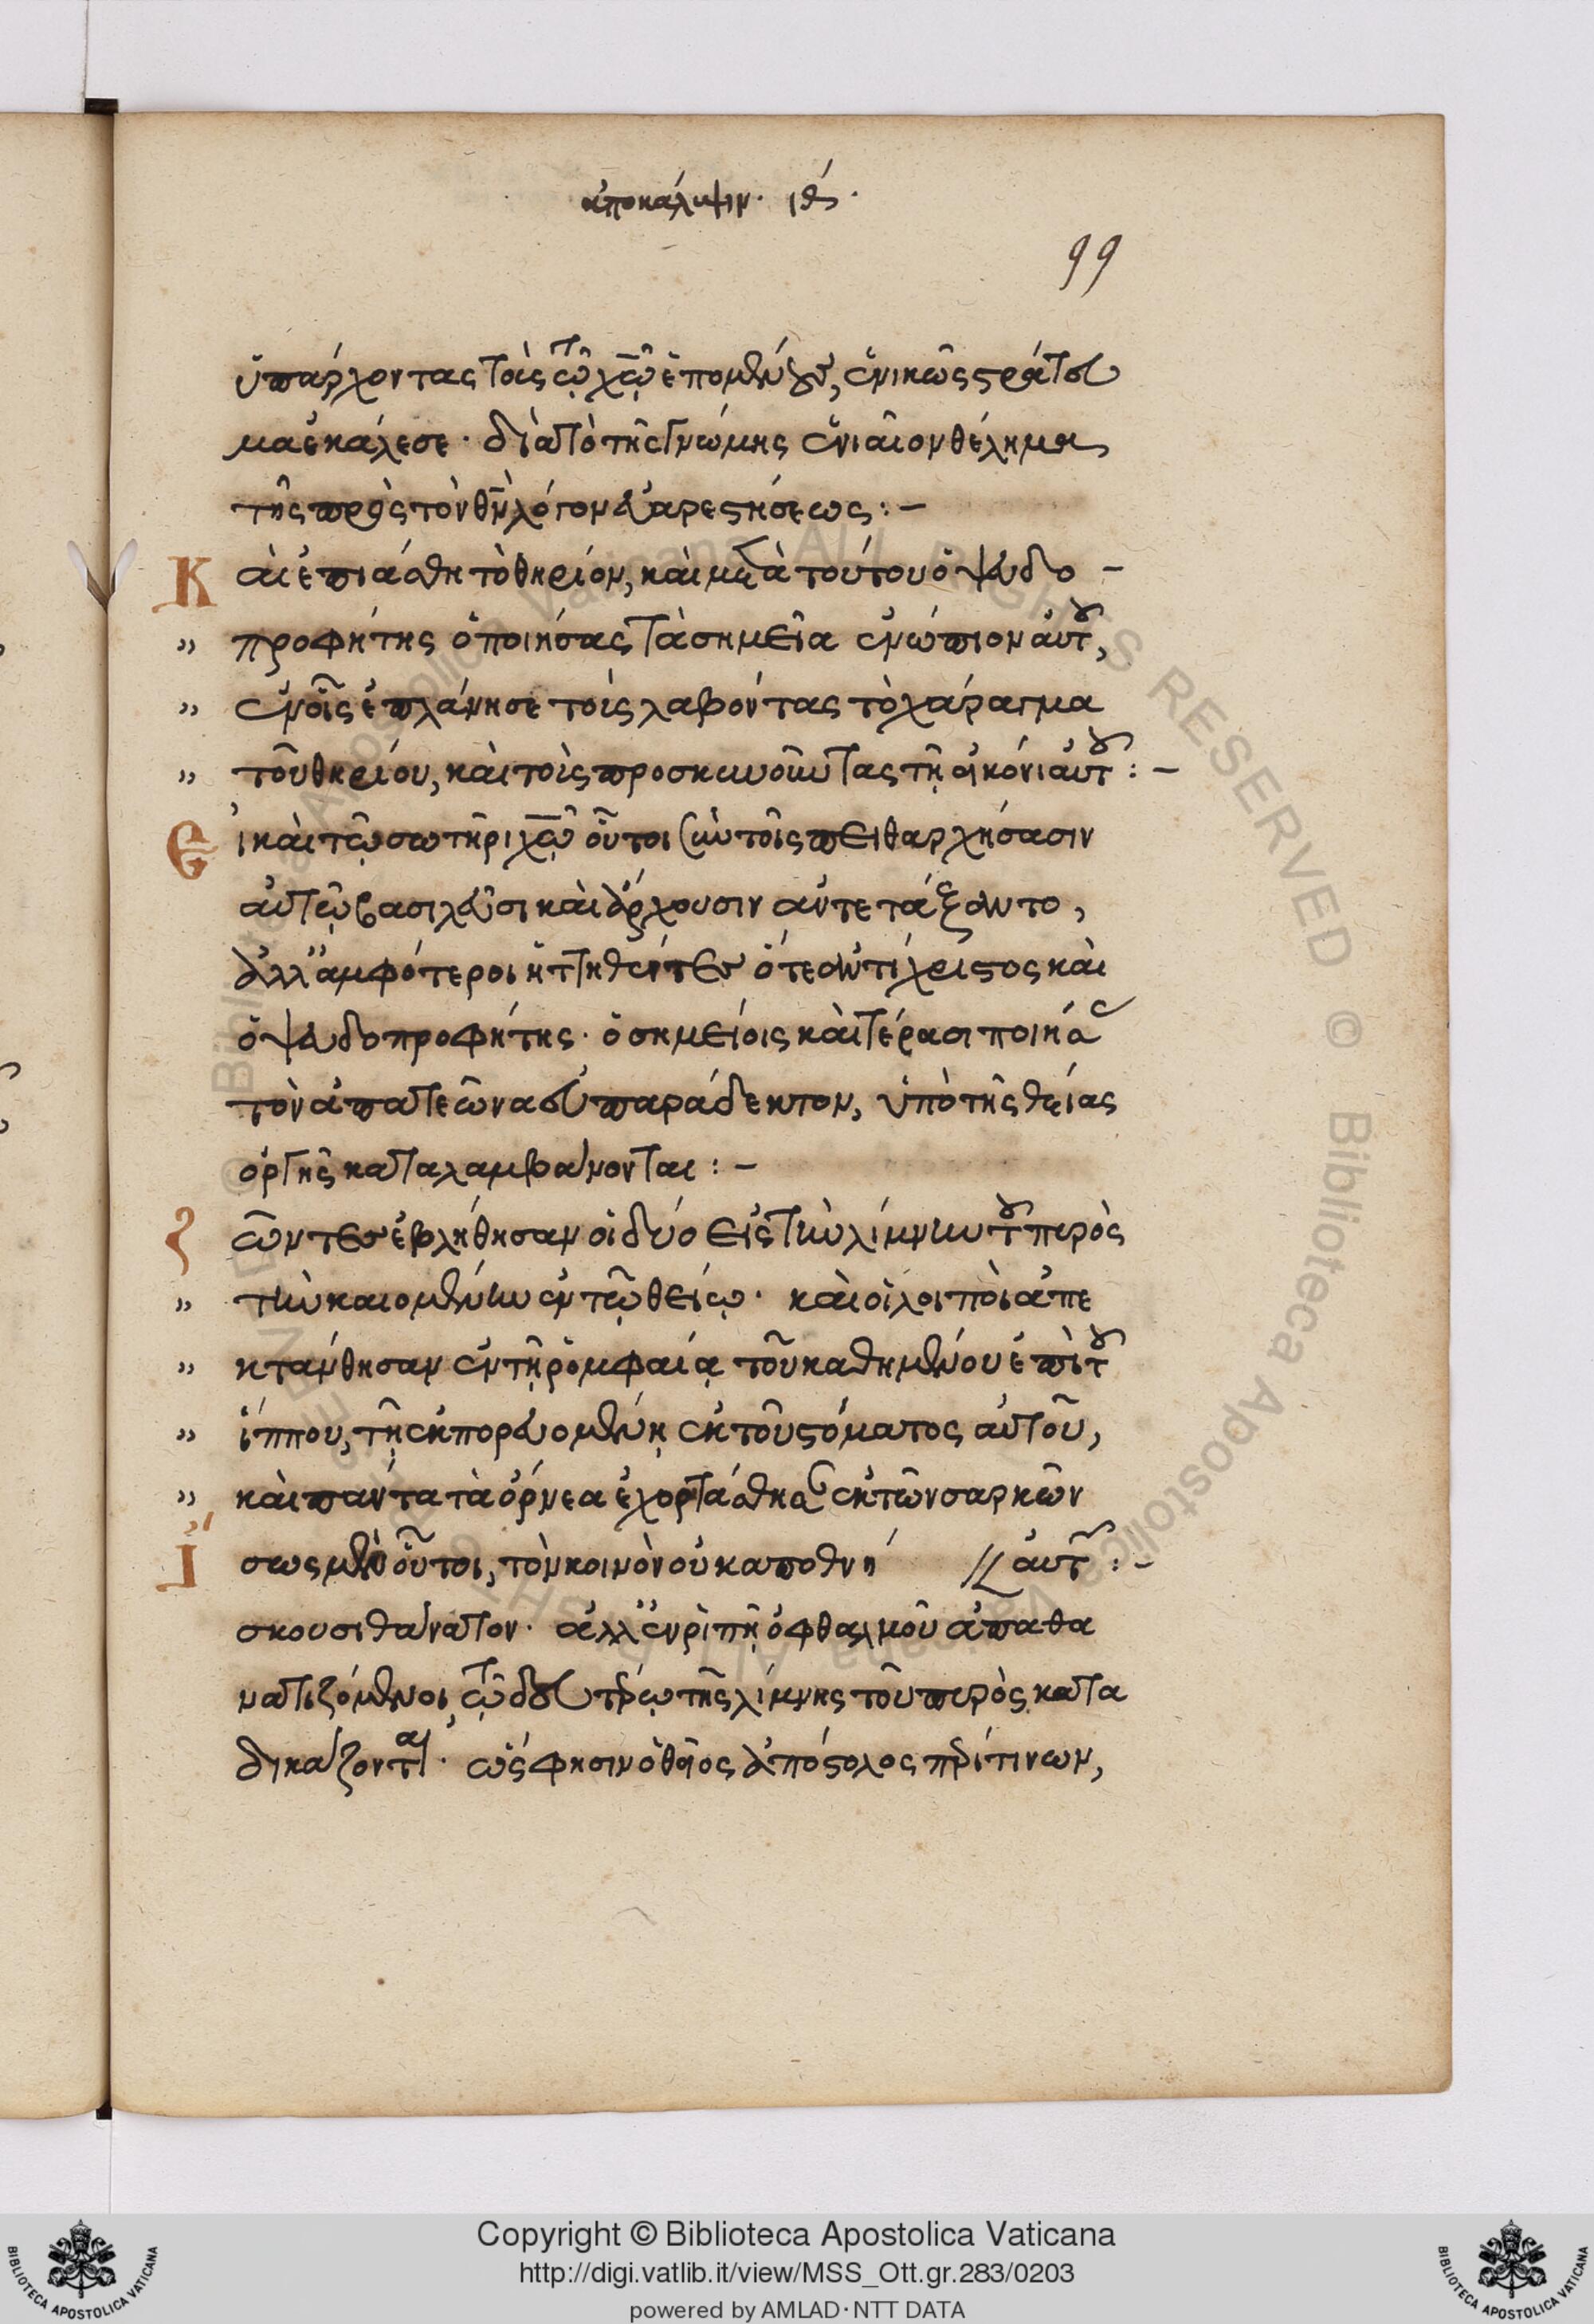 ἀποκάλυψιν. ιθ΄.
99
ὑπάρχοντας τοὺς τῷ χω ἑπομένους, ἑνικῶς στράτευ
μα ἐκάλεσε· διὰ τὸ τῆς γνώμης ἑνιαῖον θέλημα
τῆς πρὸς τὸν θν λόγον εὐαρεστήσεως:–
Καὶ ἐπιάσθη τὸ θηρίον, καὶ μετὰ τούτου ὁ ψευδο–
" προφήτης ὁ ποιήσας τὰ σημεῖα ἐνώπιον αὐτοῦ,
" ἐν οἷς ἐπλάνησε τοὺς λαβόντας τὸ χάραγμα
" τοῦ θηρίου, καὶ τοὺς προσκυνοῦντας τῇ εἰκόνι αὐτοῦ:–
Εἰ καὶ τῷ σωτῆρι χω οὗτοι σὺν τοῖς πειθαρχήσασιν
αὐτῷ βασιλεῦσι καὶ ἄρχουσιν ἀντετάξαντο,
ἀλλ' ἀμφότεροι ἡττηθέντες ὅ τε ἀντίχριστος καὶ
ὁ ψευδοπροφήτης· ὁ σημείοις καὶ τέρασι ποιήσας
τὸν ἀπατεῶνα εὐπαράδεκτον, ὑπὸ τῆς θείας
ὀργῆς καταλαμβάνονται:–
Ζῶντες ἐβλήθησαν οἱ δύο εἰς τὴν λίμνην τοῦ πυρὸς
" τὴν καιομένην ἐν τῷ θείῳ· καὶ οἱ λοιποὶ ἀπε
" κτάνθησαν ἐν τῇ ῥομφαίᾳ τοῦ καθημένου ἐπὶ τοῦ
" ἵππου, τῇ ἐκπορευομένῃ ἐκ τοῦ στόματος αὐτοῦ,
" καὶ πάντα τὰ ὄρνεα ἐχορτάσθησαν ἐκ τῶν σαρκῶν
Ἴσως μὲν οὗτοι, τὸν κοινὸν οὐκ ἀποθνή // αὐτῶν:–
σκουσι θάνατον· ἀλλ' ἐν ῥιπῇ ὀφθαλμοῦ ἀπαθα
νατιζόμενοι, τῷ δευτέρῳ τῆς λίμνης τοῦ πυρὸς κατα
δικάζονται· ὥς φησιν ὁ θεῖος ἀπόστολος περί τινων,